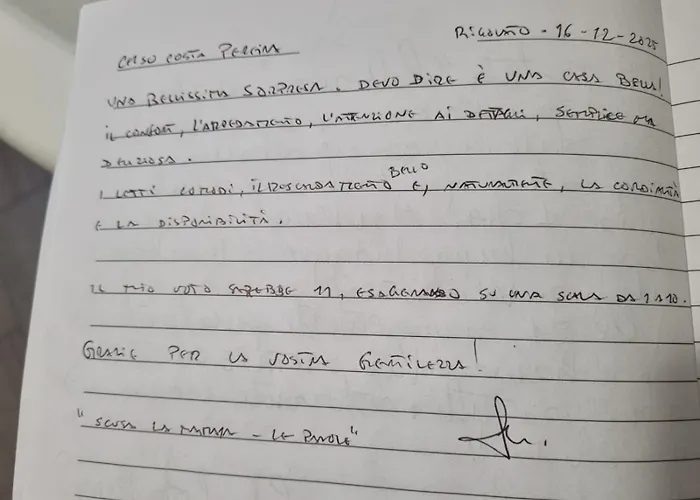 RIGOVÃO - 16-12-2025
CASO COSTA PEREIRA
UNA BELLISSIMA SORPRESA. DEVO DIRE È UNA CASA BELLA!
IL CONFORT, L'ARREDAMENTO, L'ATTENZIONE AI DETTAGLI, SEMPLICE MA
DELIZIOSA.
I LETTI COMODI, IL RISCALDAMENTO BELLO E, NATURALMENTE, LA CORDIALITÀ
E LA DISPONIBILITÀ.
IL MIO VOTO SAREBBE 11, ESAGERANDO SU UNA SCALA DA 1 A 10.
GRAZIE PER LA VOSTRA GENTILEZZA!
"SCUSA LA - LE PAROLE"